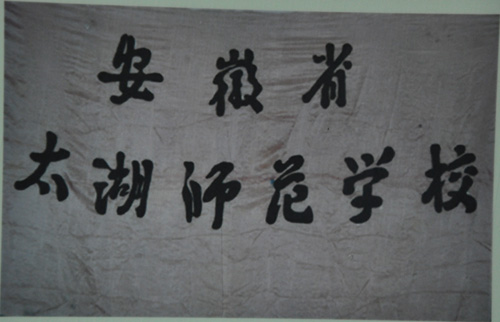 安徽省
太湖师范学校